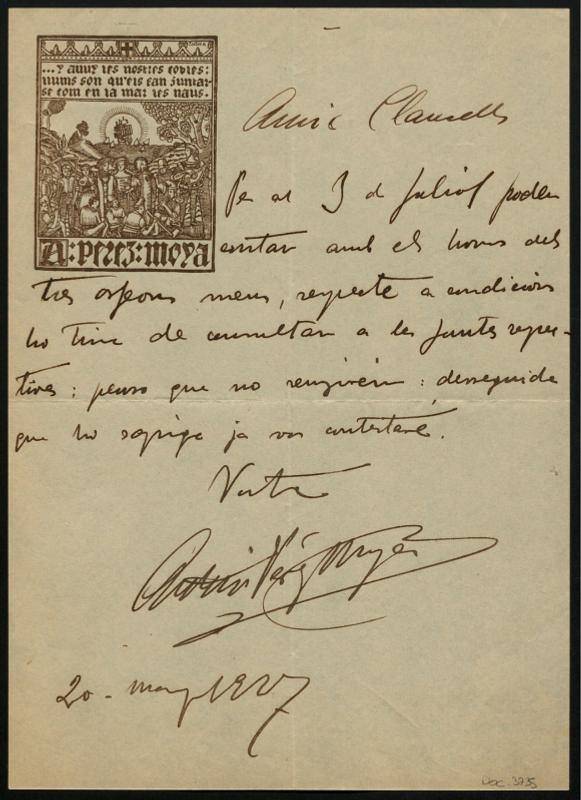 ...y auuy les nostres cobles:
nums son qu'els can juntar-
se com en la mar les naus.
A: perez: moya
Amic Clausells
Per al 3 de Juliol podeu
contar amb els homes dels
tres orfeons meus, respecte a condicions
ho tinc de consultar a les Juntes respec-
tives; penso que no renyirém: desseguida
que ho sapiga ja vos contestaré.
Vostre
Antoni Pérez Moya
20 - maig 1927
Doc. 3735